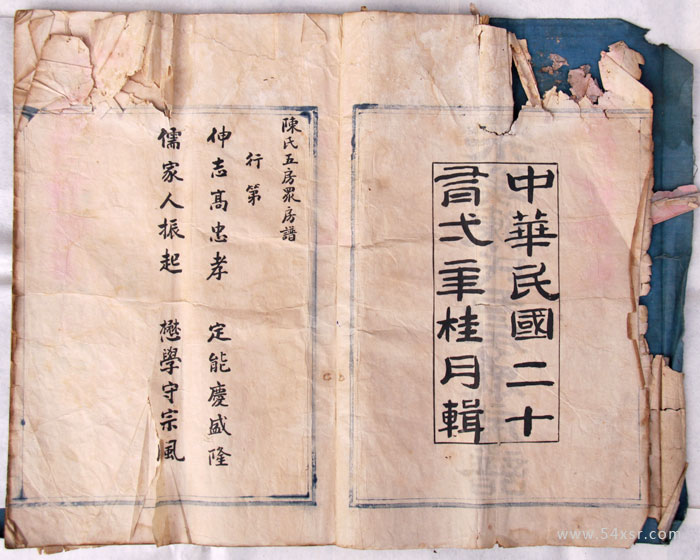 中華民國二十
有弍年桂月輯
陳氏五房眾房譜
行第
伸志髙忠孝 定能慶盛隆
儒家人振起 懋學守宗風
www.54xsr.com